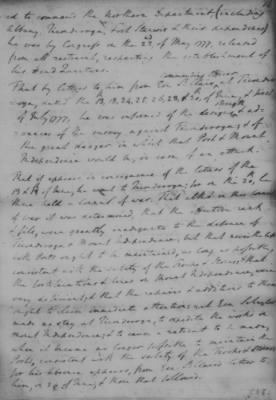 ed to command the Northern Department (including
Albany, Ticonderoga, Fort Stanwix & their dependencies)
he was by Congress on the 22d of May 1777, released
from all restraint, respecting the establishment of
his Head Quarters.
commanding officer
That by letters to him from Gen St. Clair, at Ticonde
roga, dated the 13, 18, 24, 25, 26, 28, & 30 of June, &
of July 1777, he was informed of the strength, designs & ad-
vances of the enemy against Ticonderoga; & of
the great danger in which that Post & Mount
Independence would be, in case of an attack.
That it appears, in consequence of the letters of the
13 & 18 of June, he went to Ticonderoga; for on the 20, he
there held a council of war. That altho in this council
of war it was determined, that the effective rank
& file, were greatly inadequate to the defence of
Ticonderoga & Mount Independence; but that nevertheless
both Posts ought to be maintained, as long as possible,
consistent with the safety of the Troops & Stores; that
the fortifications & lines on Mount Independence, were
very deficient; & that the repairs & additions to them
ought to claim immediate attention; yet Gen Schuyler
made no stay at Ticonderoga, to expedite the works on
Mount Independence; & to cover a retreat to it, when
it became no longer possible to maintain the
Posts, consistent with the safety of the Troops & Stores
for his absence appears, from Gen St. Clair's letters to
him, on 24 of June, & those that followed.